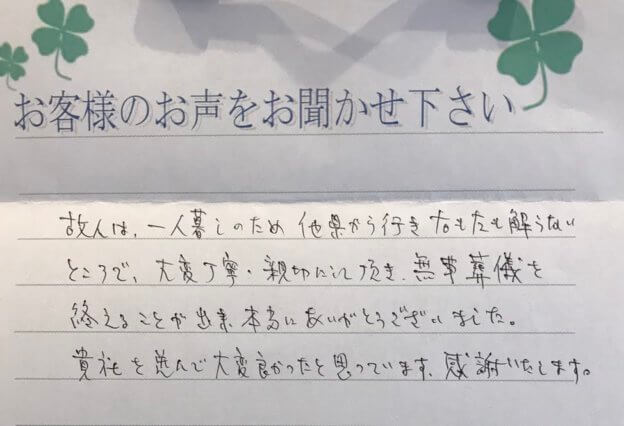 お客様のお声をお聞かせ下さい
故人は、一人暮しのため他県から行き右も左も解らない
ところで、大変丁寧・親切にして頂き、無事葬儀を
終えることが出来、本当にありがとうございました。
貴社を選んで大変良かったと思っています。感謝いたします。